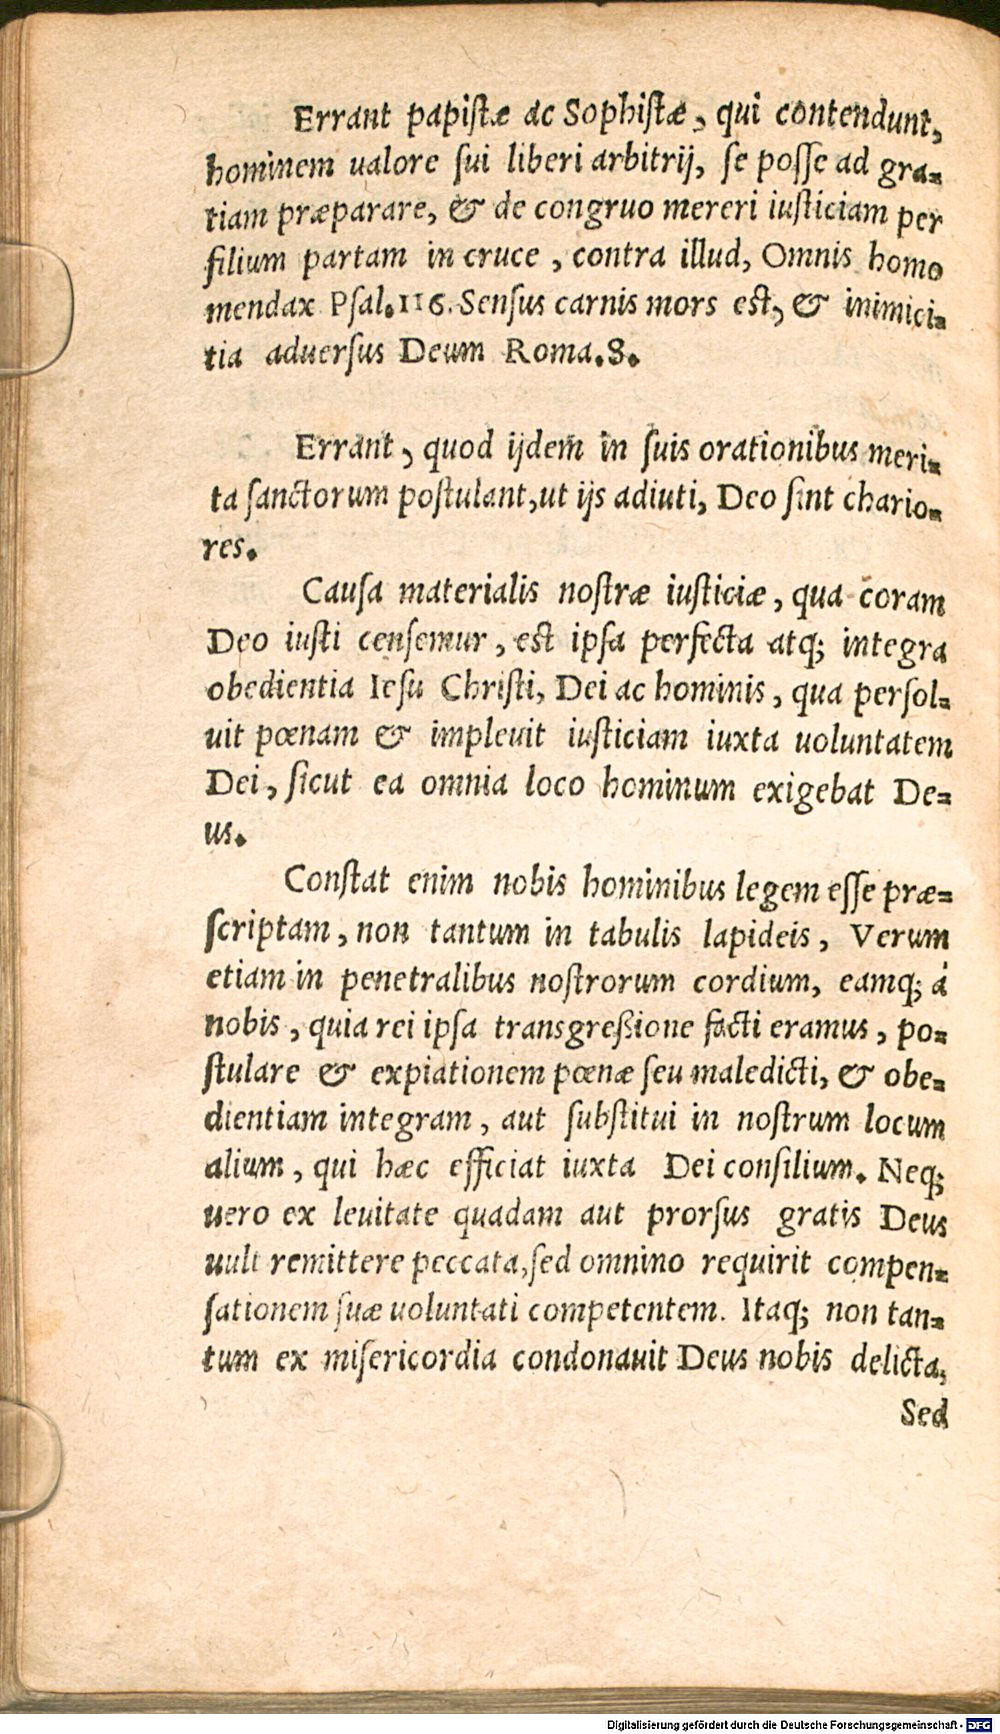 Errant papistæ ac Sophistæ, qui contendunt,
hominem ualore sui liberi arbitrij, se posse ad gra=
tiam præparare, & de congruo mereri iusticiam per
filium partam in cruce, contra illud, Omnis homo
mendax Psal. 116. Sensus carnis mors est, & inimici=
tia aduersus Deum Roma. 8.
Errant, quod ijdem in suis orationibus meri=
ta sanctorum postulant, ut ijs adiuti, Deo sint chario=
res.
Causa materialis nostræ iusticiæ, qua coram
Deo iusti censemur, est ipsa perfecta atq; integra
obedientia Iesu Christi, Dei ac hominis, qua persol=
uit pœnam & impleuit iusticiam iuxta uoluntatem
Dei, sicut ea omnia loco hominum exigebat De=
us.
Constat enim nobis hominibus legem esse præ=
scriptam, non tantum in tabulis lapideis, Verum
etiam in penetralibus nostrorum cordium, eamq; á
nobis, quia rei ipsa transgreßione facti eramus, po=
stulare & expiationem pœnæ seu maledicti, & obe=
dientiam integram, aut substitui in nostrum locum
alium, qui hæc efficiat iuxta Dei consilium. Neq;
uero ex leuitate quadam aut prorsus gratis Deus
uult remittere peccata, sed omnino requirit compen=
sationem suæ uoluntati competentem. Itaq; non tan=
tum ex misericordia condonauit Deus nobis delicta,
Sed
Digitalisierung gefördert durch die Deutsche Forschungsgemeinschaft - DFG